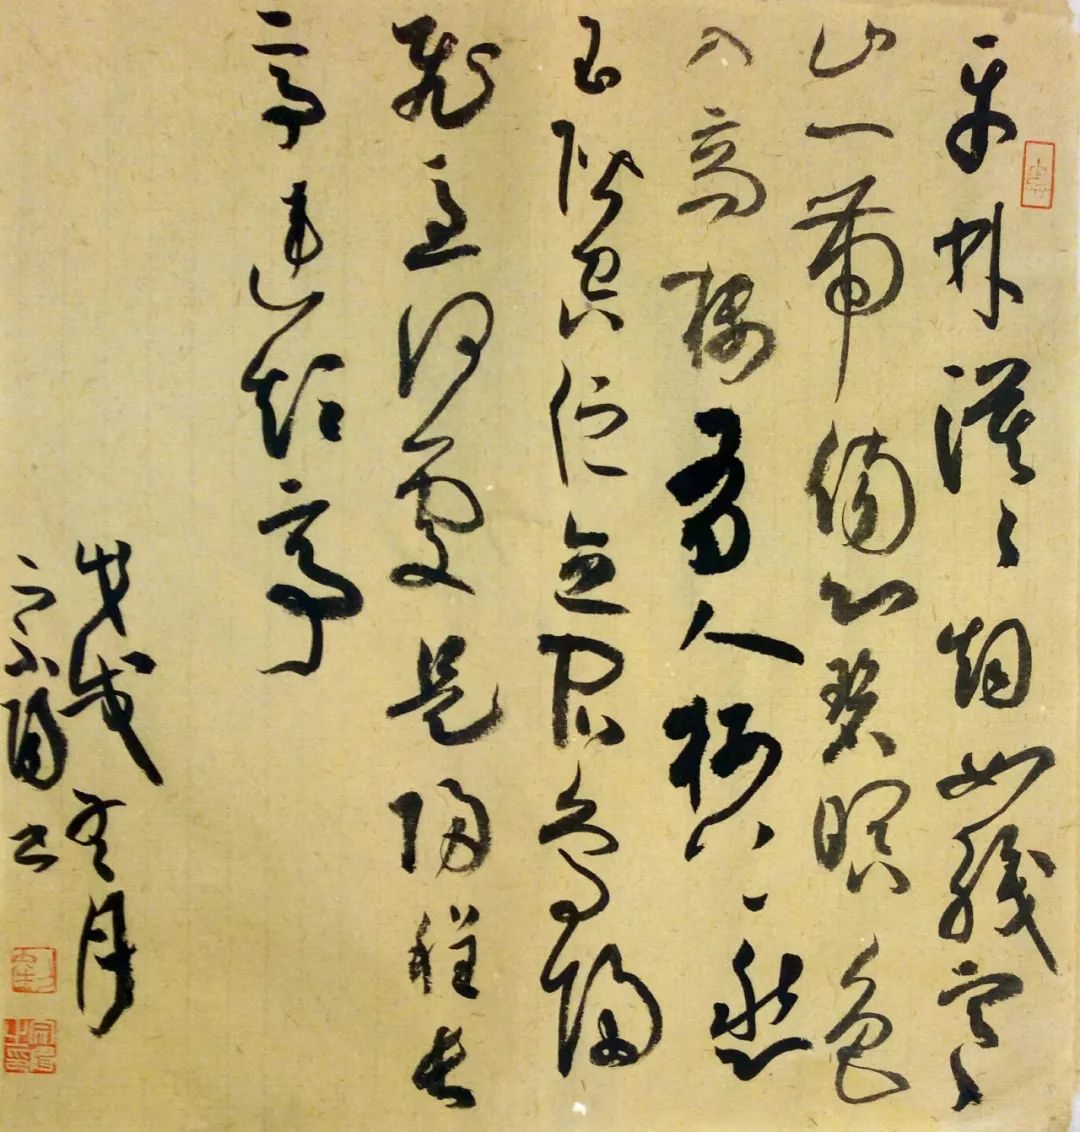 平林漠漠烟如織寒
山一帶傷心碧暝色
入高樓有人樓上愁
玉階空佇立宿鳥歸
飛急何處是歸程長
亭連短亭
戊戌月
书